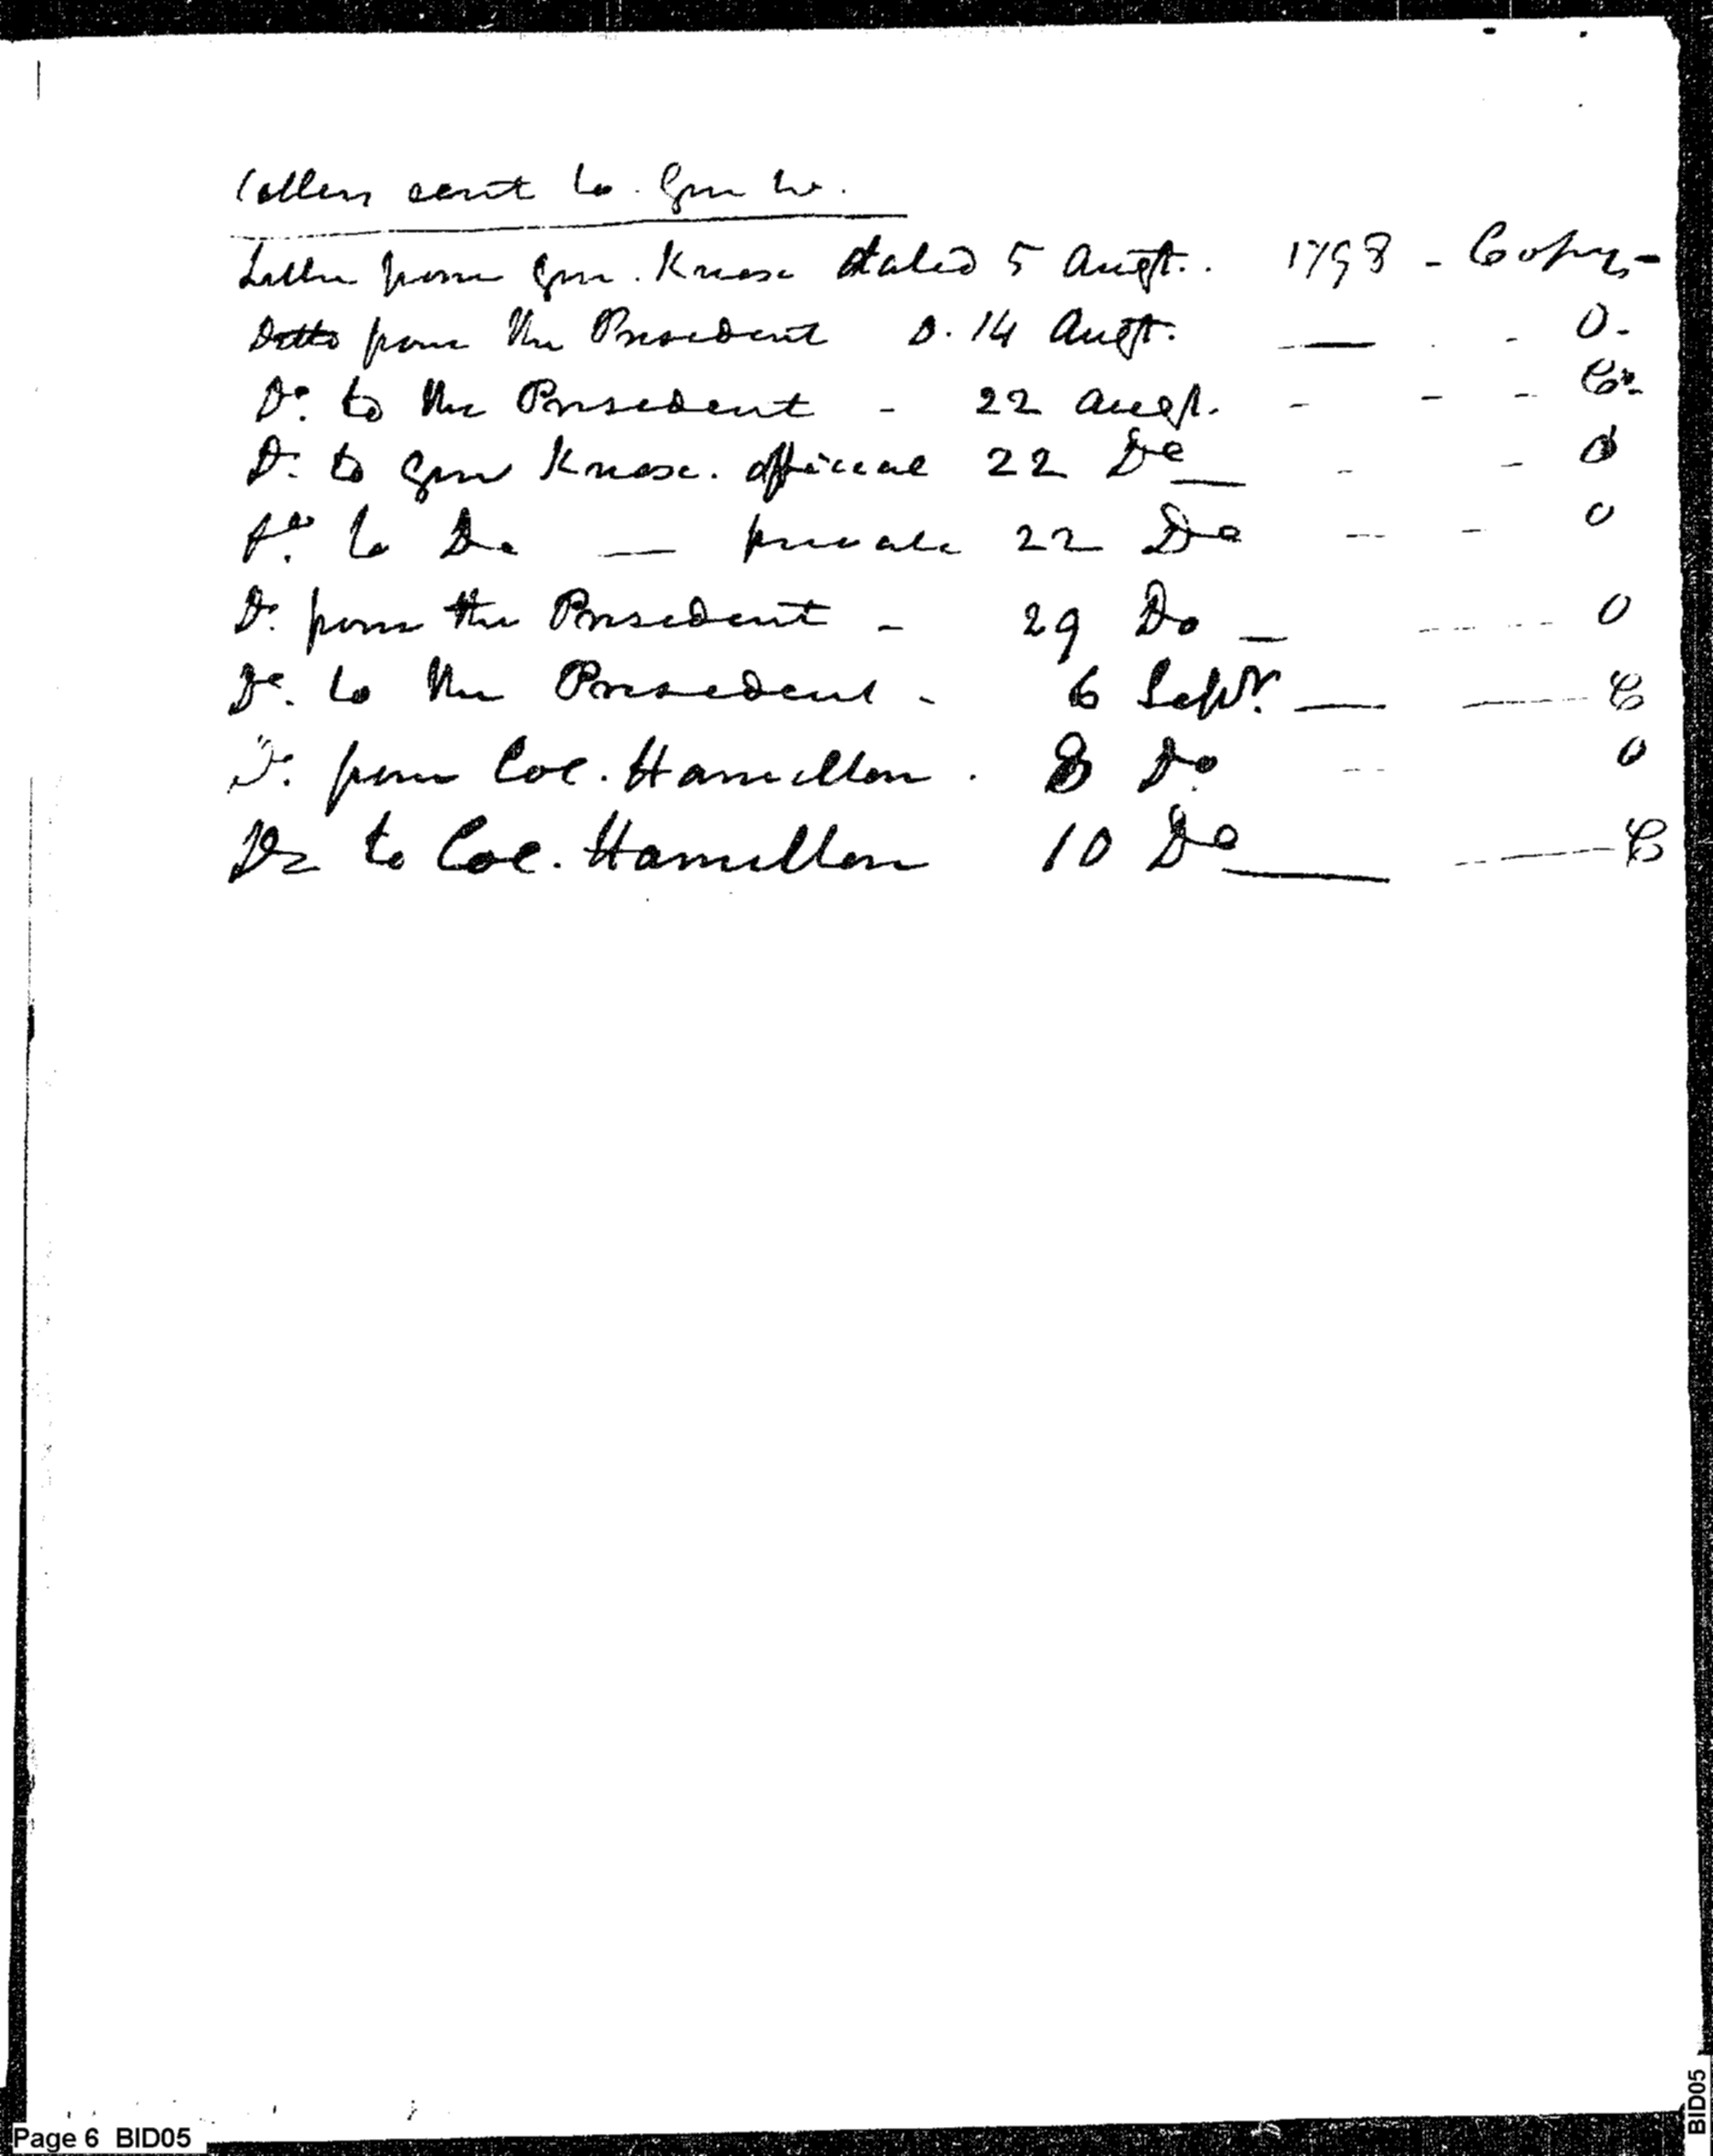 Letters sent to Gen W.
Letter from Gen. Knox dated 5 Augt. 1798 - Copy -
Ditto from the President D. 14 Augt. — - O.
Do. to the President - 22 Augt. - - - Co.
Do. to Gen Knox. official 22 Do — - - O
Do. to Do — private 22 Do - - O
Do. from the President - 29 Do — - O
Do. to the President - 6 Septr. — — C
Do. from Col. Hamilton . 8 Do - O
Do to Col. Hamilton 10 Do — — C
Page 6 BID05
BID05